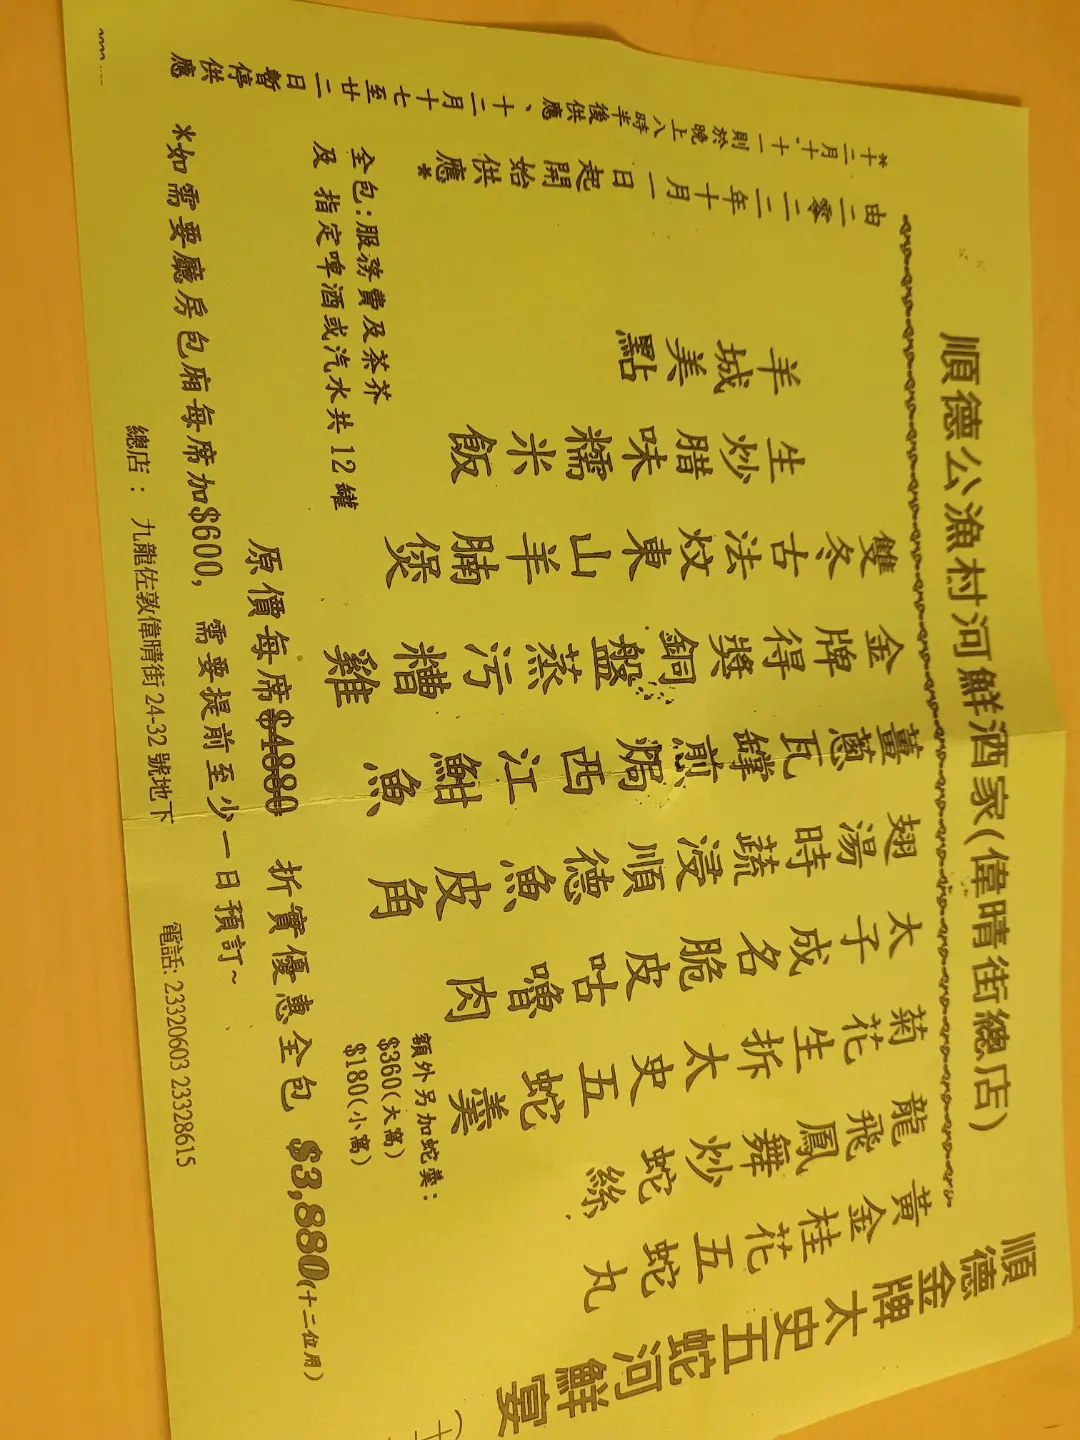 順德公漁村河鮮酒家(偉晴街總店)
順德金牌太史五蛇河鮮宴
黃金桂花五蛇丸
龍飛鳳舞炒蛇絲
菊花生拆太史五蛇羹
額外另加蛇羹:
$360(大窩)
$180(小窩)
太子成名脆皮咕嚕肉
翅湯時蔬浸順德魚皮角
薑蔥瓦罉煎焗西江魽魚
金牌得獎銅盤蒸污糟雞
雙冬古法炆東山羊腩煲
生炒腊味糯米飯
羊城美點
由二零二二年十月一日起開始供應*
*十二月十,十一則於晚上八時半後供應、十二月十七至廿二日暫停供應
全包:服務費及茶芥
及 指定啤酒或汽水共12罐
原價每席$4880 折實優惠全包 $3,880(十二位用)
*如需要廳房包廂每席加$600, 需要提前至少一日預訂~
總店: 九龍佐敦偉晴街 24-32 號地下 電話: 23320603 23328615